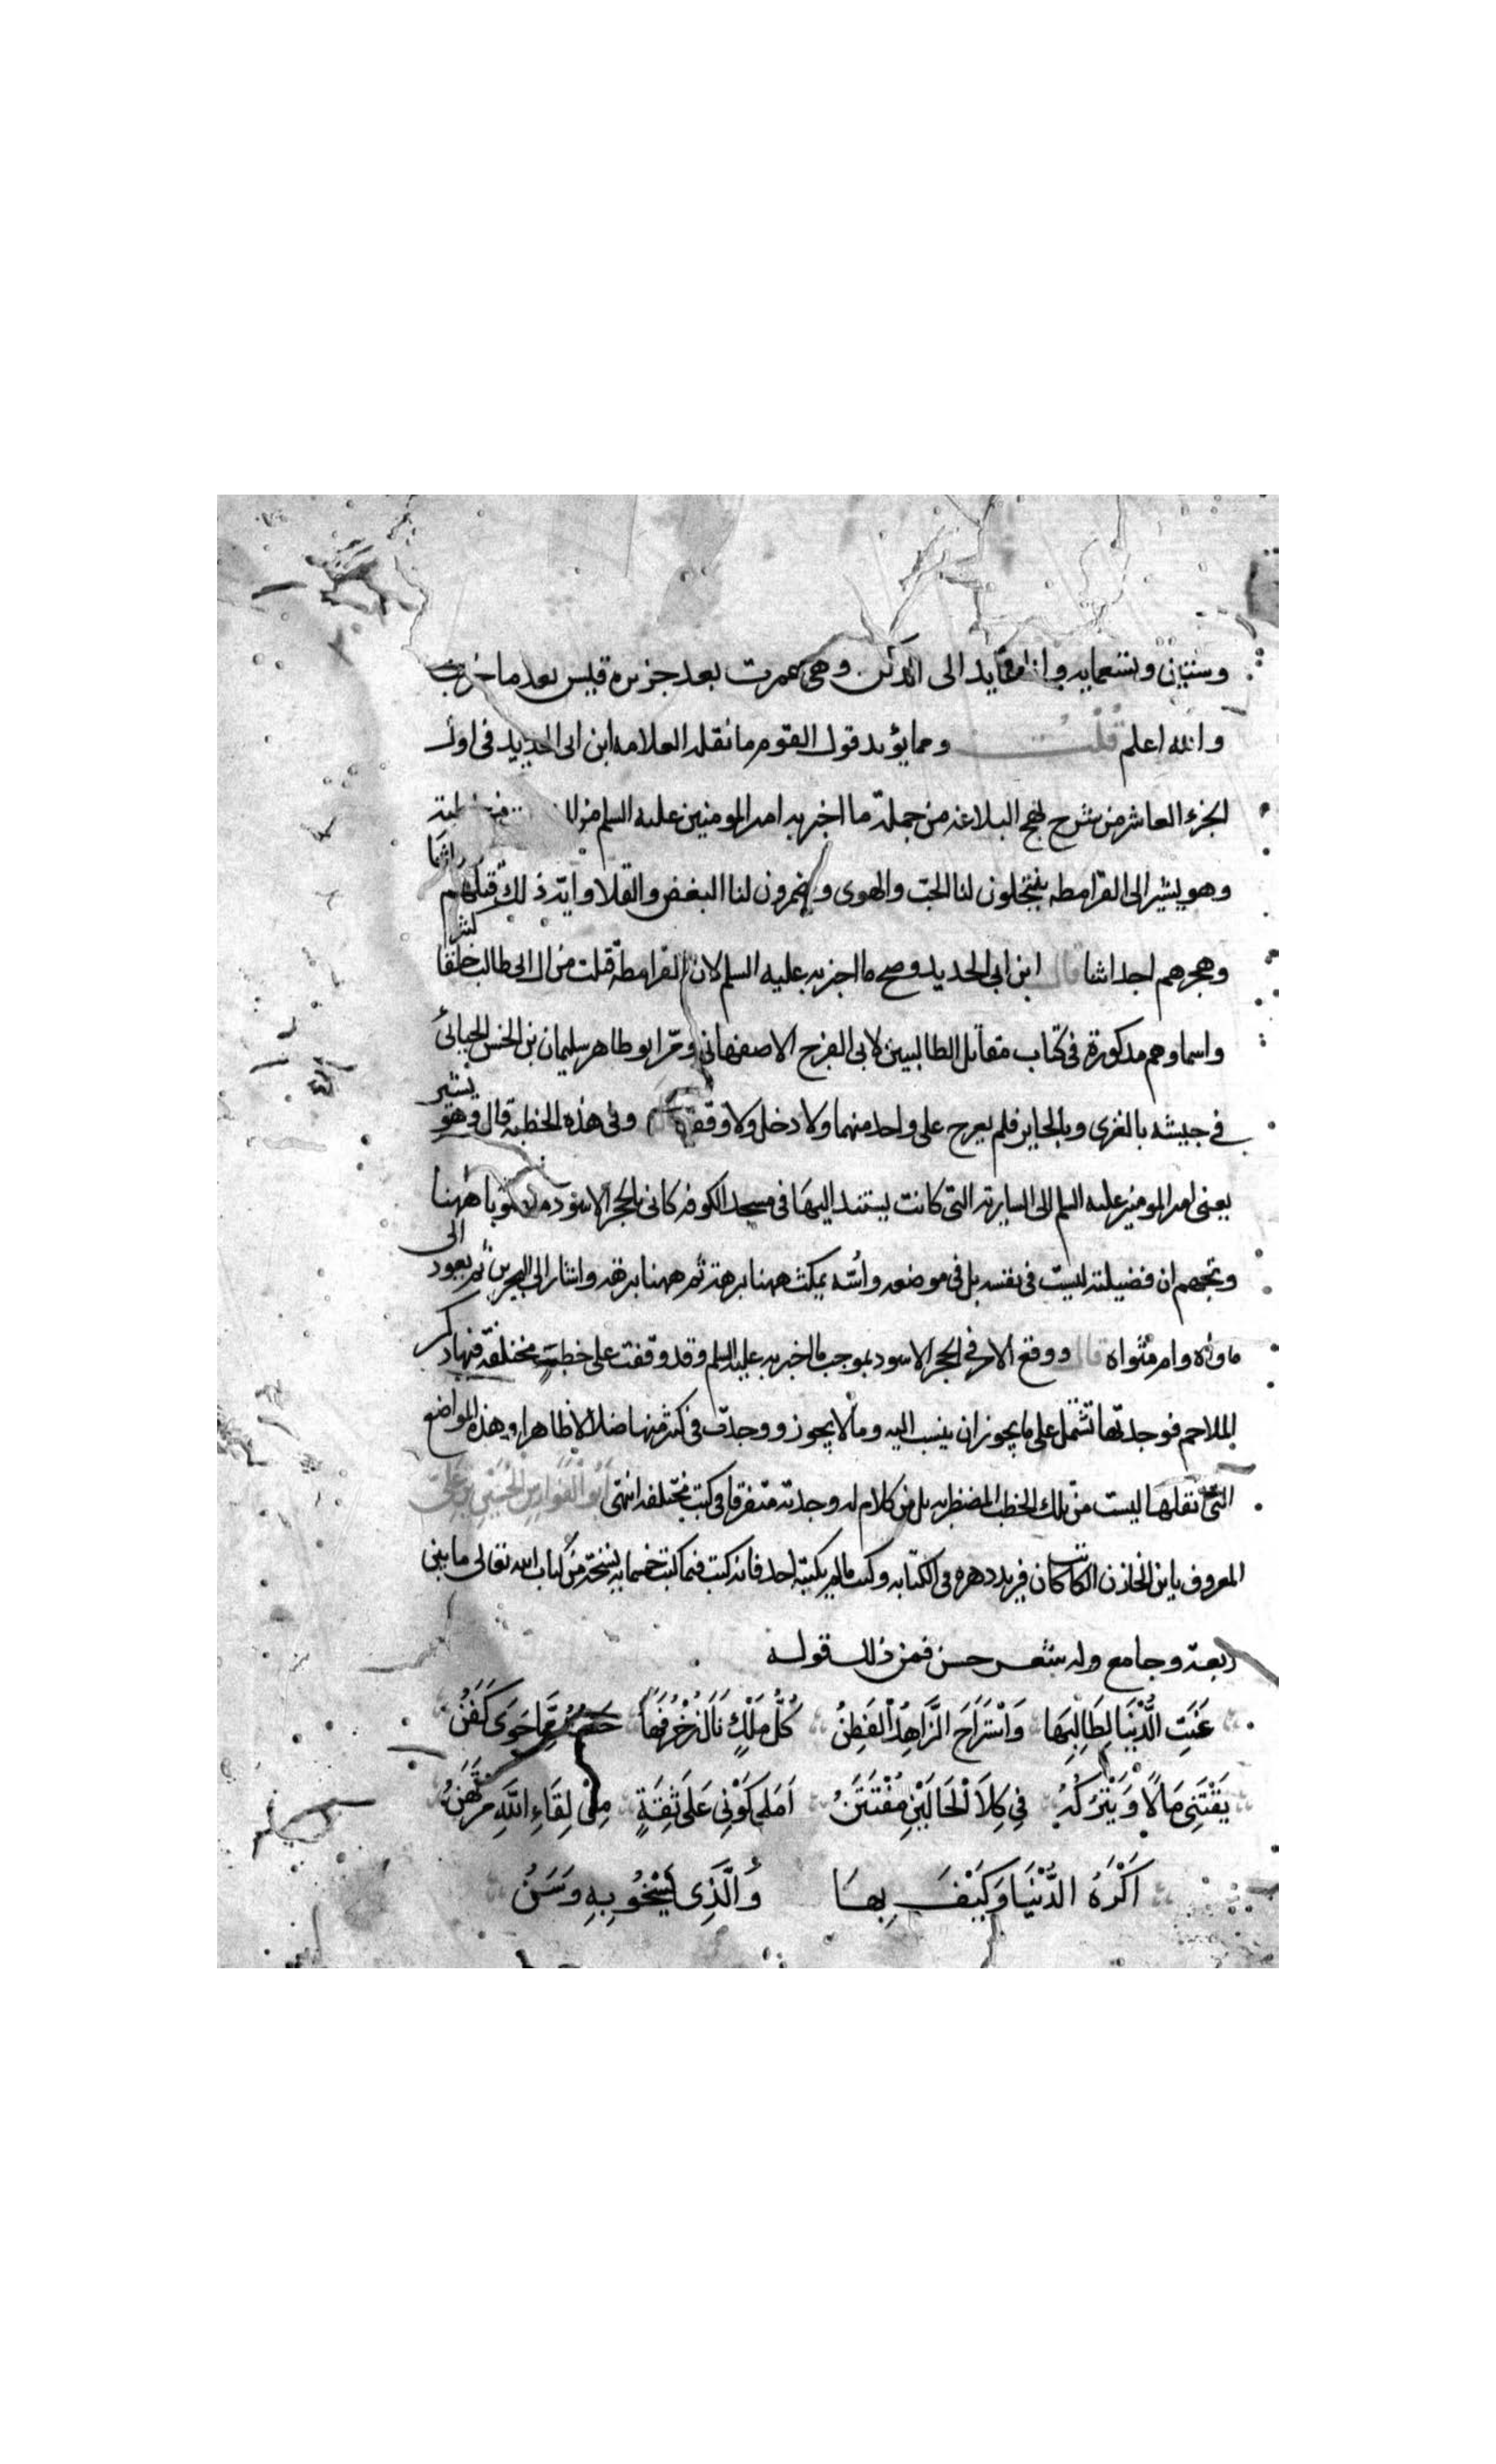 وستين وتسعمايه وا الى الدكن وهي عمرت بعد جزيره قيس بعد ما خربت
والله اعلم قلت ومما يؤيد قول القوم ما نقله العلامه ابن ابى الحديد فى اول
الجزء العاشر من شرح نهج البلاغه من جملة ما اخبر به امير المومنين عليه السلم من خطبته
وهو يشير الى القرامطه ينتحلون لنا الحبّ والهوى ويضمرون لنا البغض والقلا وايّة ذلك قتلهم وراثنا
وهجرهم احداثنا قال ابن ابى الحديد وصح ما اخبر به عليه السلم لان القرامطة قتلت من ال ابى طالب خلقا كثيرا
واسماوهم مذكورة فى كتاب مقاتل الطالبيين لابى الفرج الاصفهانى ومرّ ابو طاهر سليمان بن الحسن الجبائى
فى جيشه بالغرى وبالحاير فلم يعرج على واحد منهما ولا دخل ولا وقف وفى هذه الخطبة قال وهو يشير
يعنى امير المومنين عليه السلم الى الساريه التى كانت يستند اليها فى مسجد الكوفه كانى بالحجر الاسود منصوبا ههنا
ويحهم ان فضيلته ليست فى نفسه بل فى موضعه وأسّه يمكث ههنا برهة ثم ههنا برهة واشار الى البحرين ثم يعود الى
ماواه وام مثواه قال ووقع الامر فى الحجر الاسود بموجب ما اخبر به عليه السلم وقد وقفت على خطب مختلفة فيها ذكر
الملاحم فوجدتها تشتمل على ما يجوز ان ينسب اليه وما لا يجوز ووجدت فى كثير منها اختلالا ظاهرا وهذه المواضع
التى انقلها ليست من تلك الخطب المضطربه بل من كلام له وجدته متفرقا فى كتب مختلفه انتهى ابو الفوارس الحسين بن على
المعروف بابن الخازن الكاتب كان فريد دهره فى الكتابه وكتب ما لم يكتبه احد فانه كتب فيما كتب خمسمايه نسخة من كتاب الله تعالى ما بين
ربعة وجامع وله شعر حسن فمن ذلك قوله
عَنَتِ الدُّنْيَا لِطَالِبِهَا وَاسْتَرَاحَ الزَّاهِدُ الفَطِنُ كُلُّ مَلْكٍ نَالَ زُخْرُفَهَا حَسْبُهُ مِمَّا حَوَى كَفَنُ
يَقْتَنِى مَالًا وَيَتْرُكُهُ فِي كِلَا الْحَالَيْنِ مُفْتَتَنُ اَمَلِى كَوْنِى عَلَى ثِقَةٍ مِنْ لِقَاءِ اللَّهِ مُرْتَهَنُ
اَكْرَهُ الدُّنْيَا وَكَيْفَ بِهَا وَالَّذِى تَسْخُو بِهِ وَسَنُ